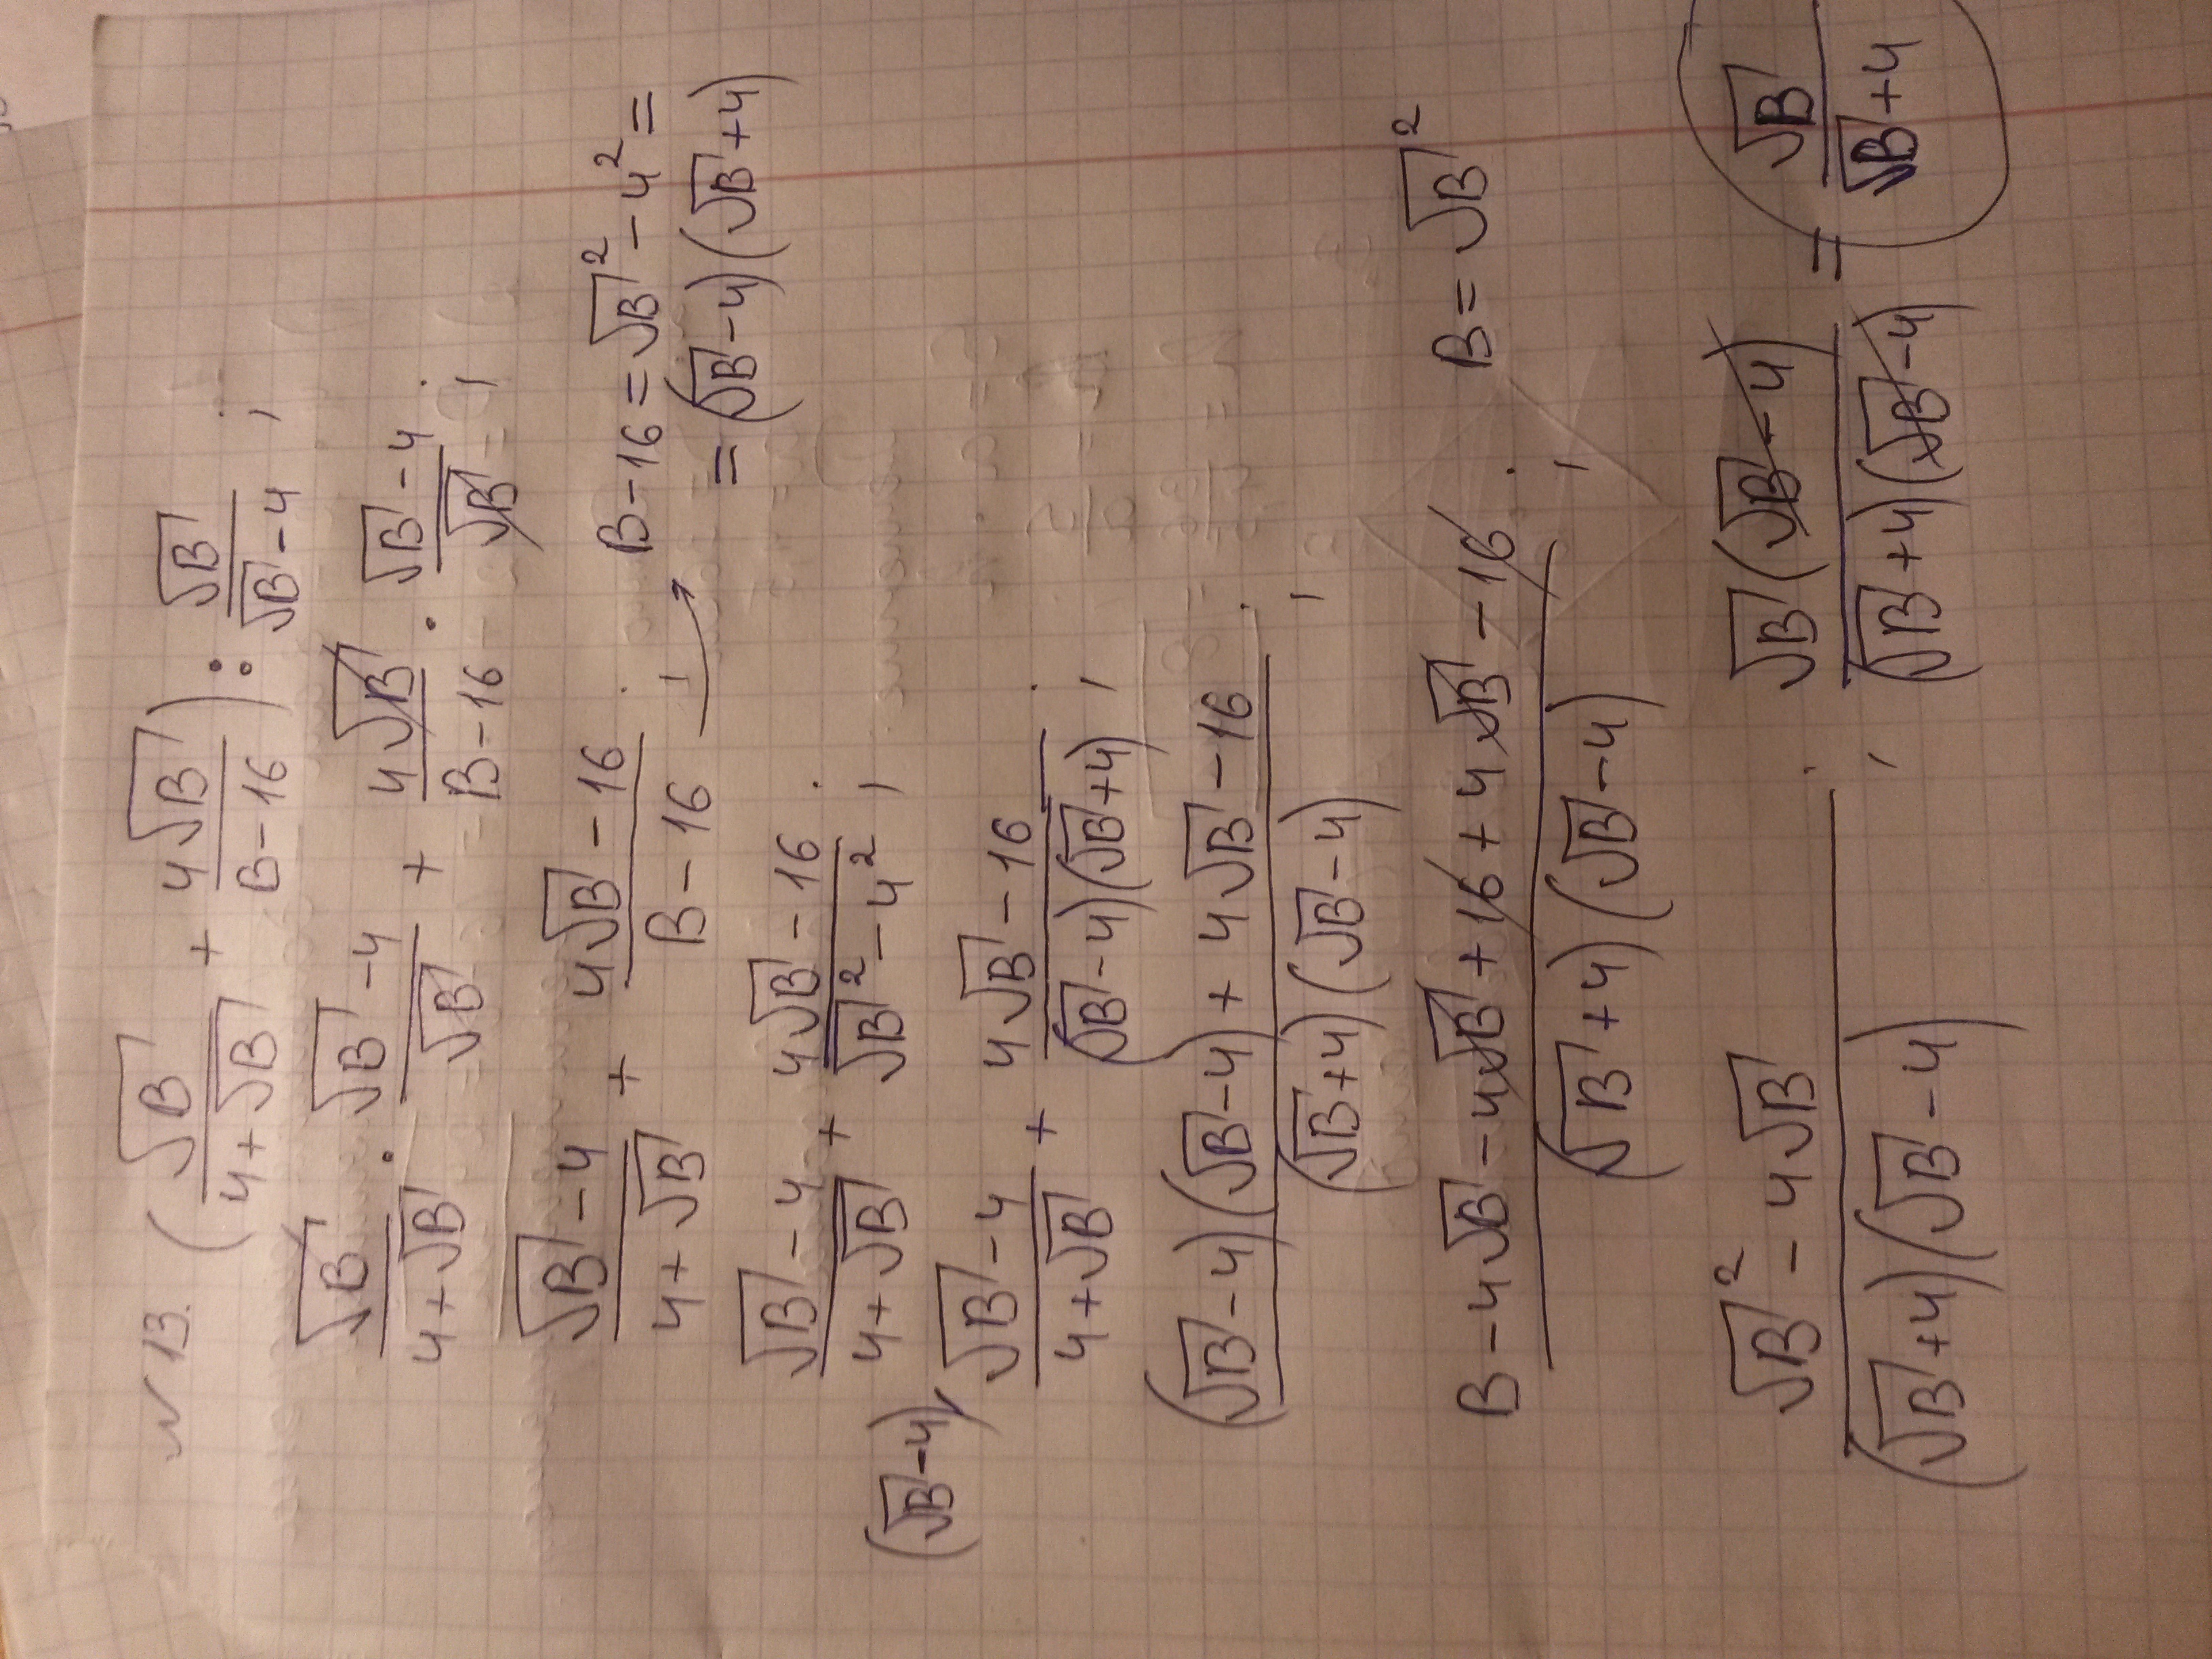 № 13. (√B / (4+√B) + 4√B / (B-16)) : √B / (√B-4) ;
√B / (4+√B) · (√B-4) / √B + 4√B / (B-16) · (√B-4) / √B ;
(√B-4) / (4+√B) + (4√B-16) / (B-16) ; → B-16=√B²-4²=
=(√B-4)(√B+4)
(√B-4) / (4+√B) + (4√B-16) / (√B²-4²) ;
(√B-4)
(√B-4) / (4+√B) + (4√B-16) / ((√B-4)(√B+4)) ;
((√B-4)(√B-4)+4√B-16) / ((√B+4)(√B-4)) ;
(B-4√B-4√B+16+4√B-16) / ((√B+4)(√B-4)) ; B=√B²
(√B²-4√B) / ((√B+4)(√B-4)) ; √B(√B-4) / ((√B+4)(√B-4)) = √B / (√B+4)